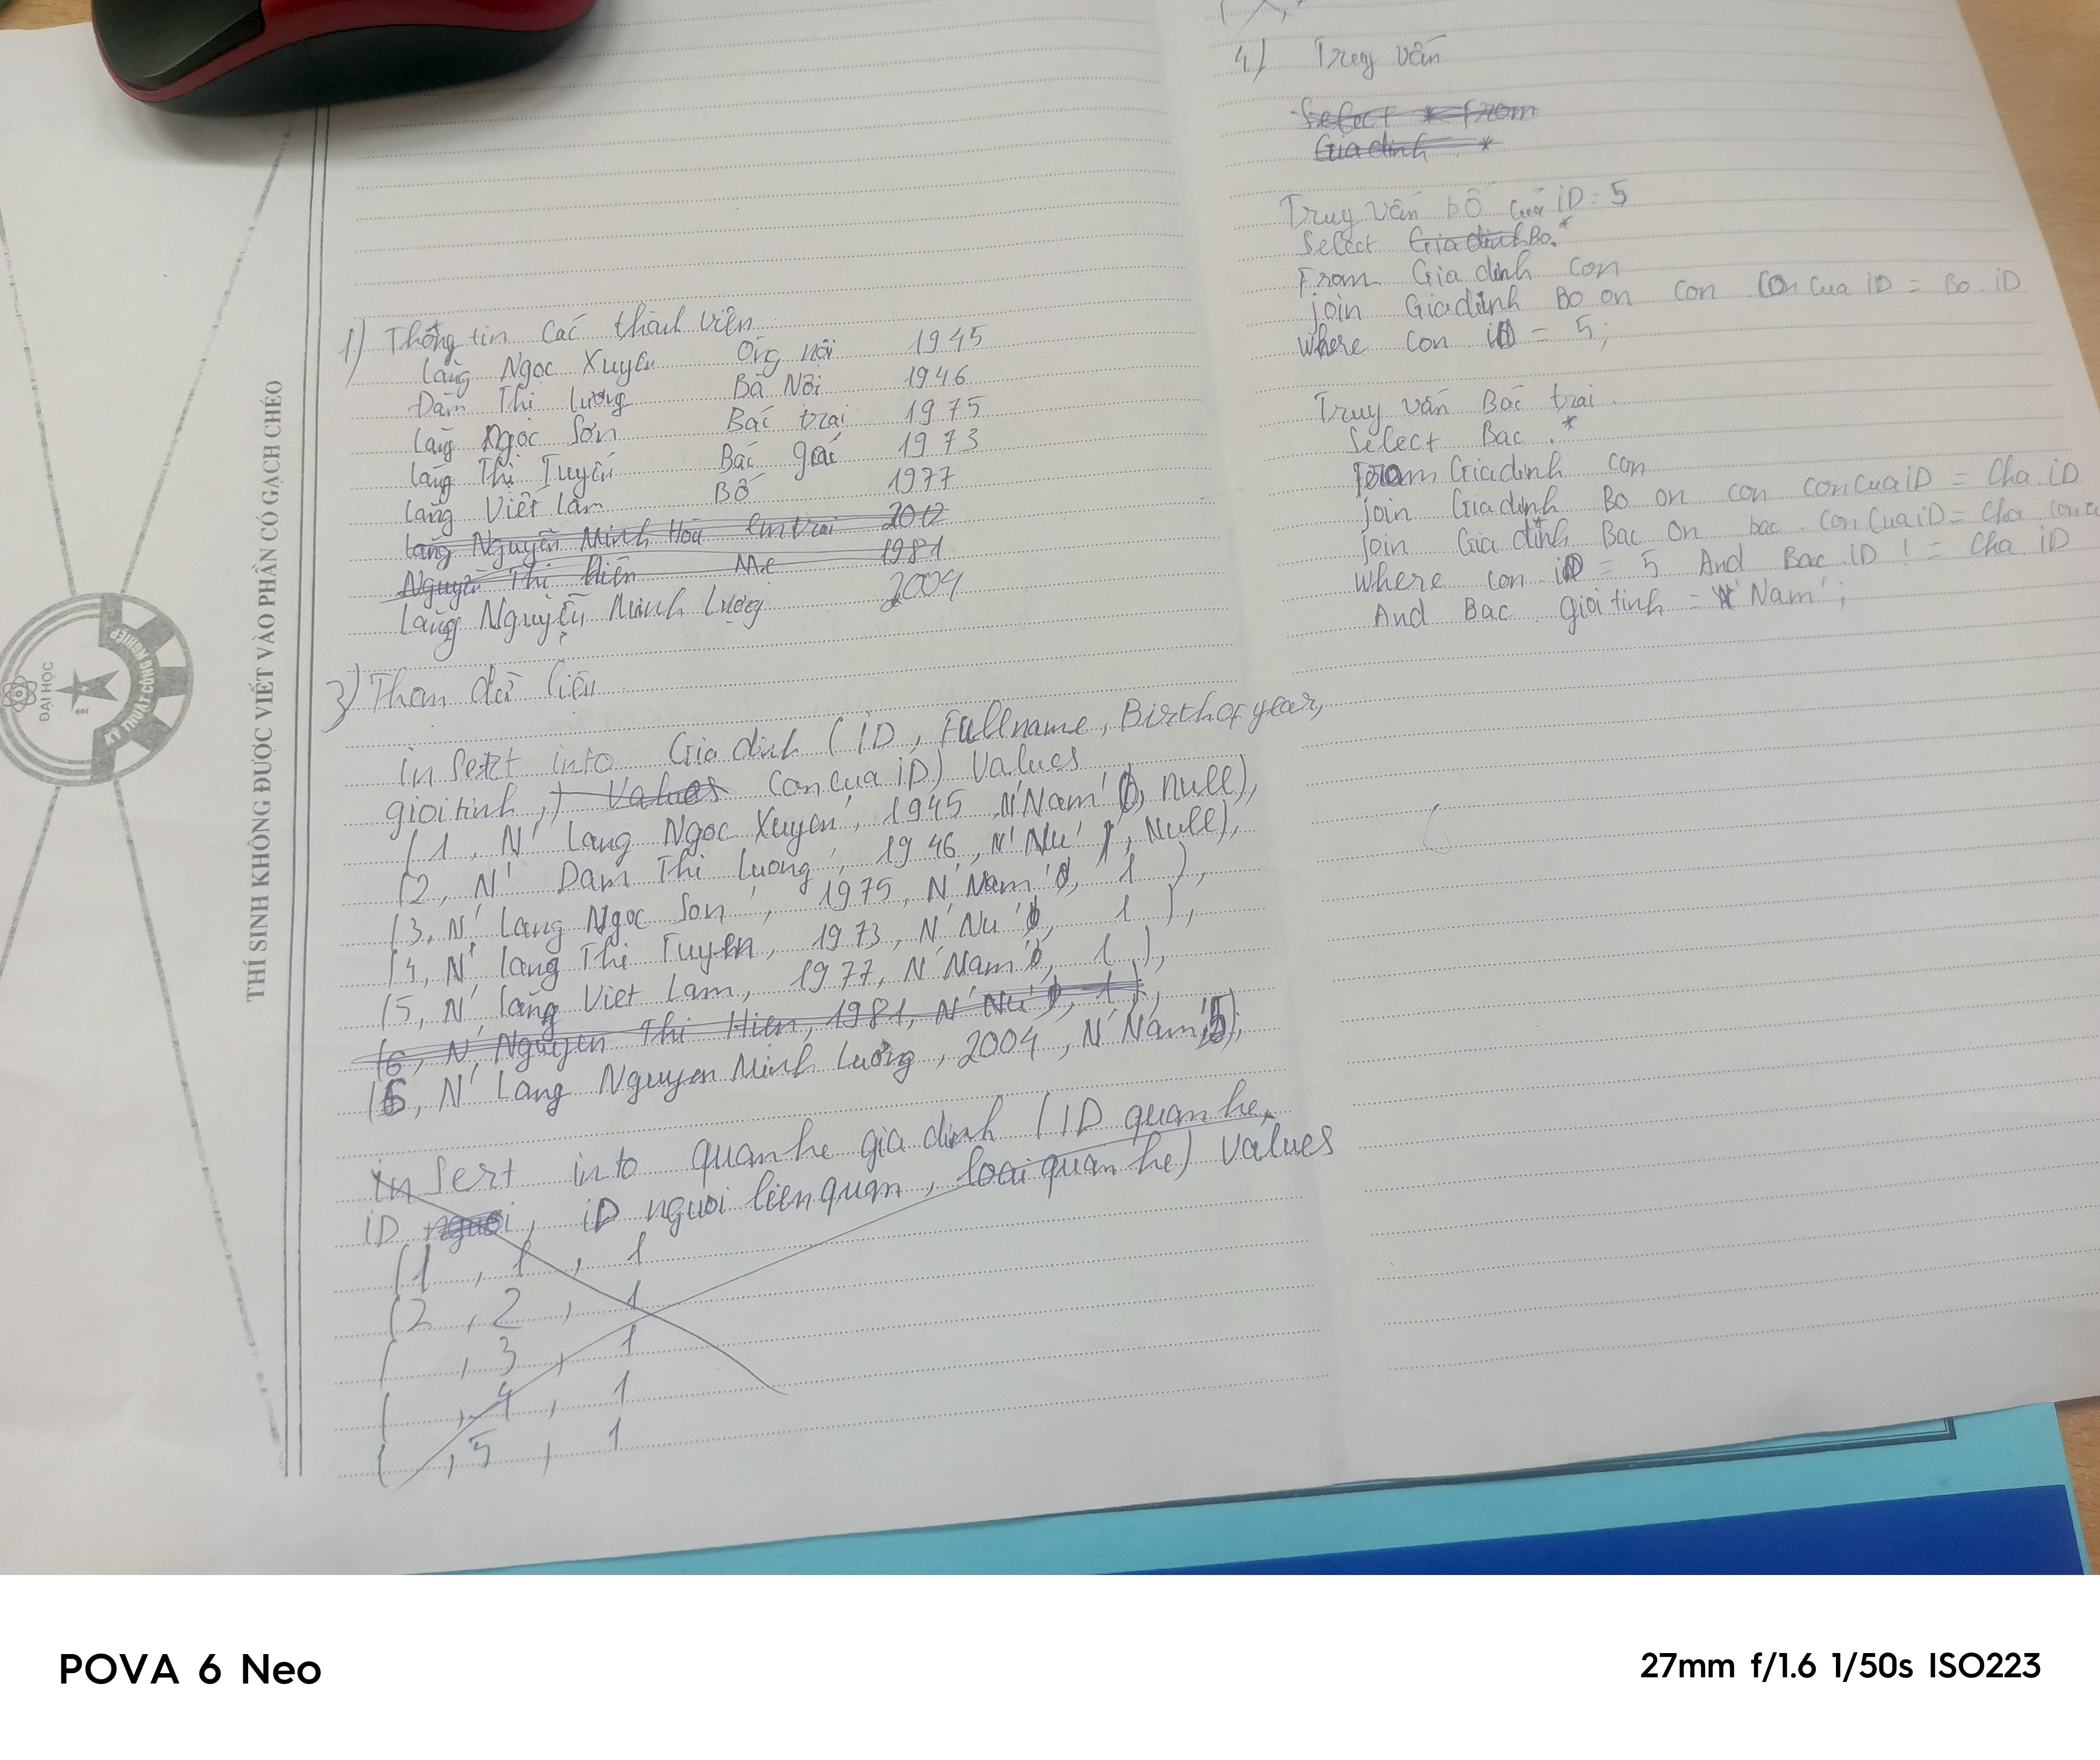 THÍ SINH KHÔNG ĐƯỢC VIẾT VÀO PHẦN CÓ GẠCH CHÉO
ĐẠI HỌC
KỸ THUẬT CÔNG NGHIỆP
1) Thông tin các thành viên
Lăng Ngọc Xuyên Ông nội 1945
Đàm Thị Lương Bà Nội 1946
Lăng Ngọc Sơn Bác trai 1975
Lăng Thị Tuyến Bác gái 1973
Lăng Viết Lâm Bố 1977
Lăng Nguyễn Minh Hoà Em trai 2012
Nguyễn Thị Hiên Mẹ 1981
Lăng Nguyễn Minh Lượng 2004
3) Them dữ liệu
insert into Gia dinh (iD, Fullname, Birthofyear,
gioi tinh,) Values con cua iD) Values
(1, N' Lang Ngoc Xuyen', 1945, N'Nam', null),
(2, N' Dam Thi Luong', 1946, N'Nu', Null),
(3, N' Lang Ngoc Son', 1975, N'Nam', 1),
(4, N' lang Thi Tuyen, 1973, N'Nu', 1),
(5, N' lang Viet Lam, 1977, N'Nam', 1),
(6, N' Nguyen Thi Hien, 1981, N'Nu', 1),
(6, N' Lang Nguyen Minh Lương, 2004, N'Nam, 5),
insert into quanhe gia dinh (ID quan he,
iD nguoi, iD nguoi lienquan, loai quan he) Values
(1, 1, 1
(2, 2, 1
( , 3, 1
( , 4, 1
( , 5, 1
4) Truy vấn
Select * from
Gia dinh *
Truy vấn bố của iD = 5
Select Gia dinh Bo.*
From Gia dinh con
join Giadinh Bo on con Con cua iD = Bo.iD
where con iD = 5;
Truy vấn Bác trai.
Select Bac.*
From Giadinh con
join Giadinh Bo on con concuaiD = Cha.iD
join Gia dinh Bac On bac.concuaiD = Cha
where con.iD = 5 And Bac.iD != Cha iD
And Bac.gioi tinh = 'Nam';
POVA 6 Neo
27mm f/1.6 1/50s ISO223